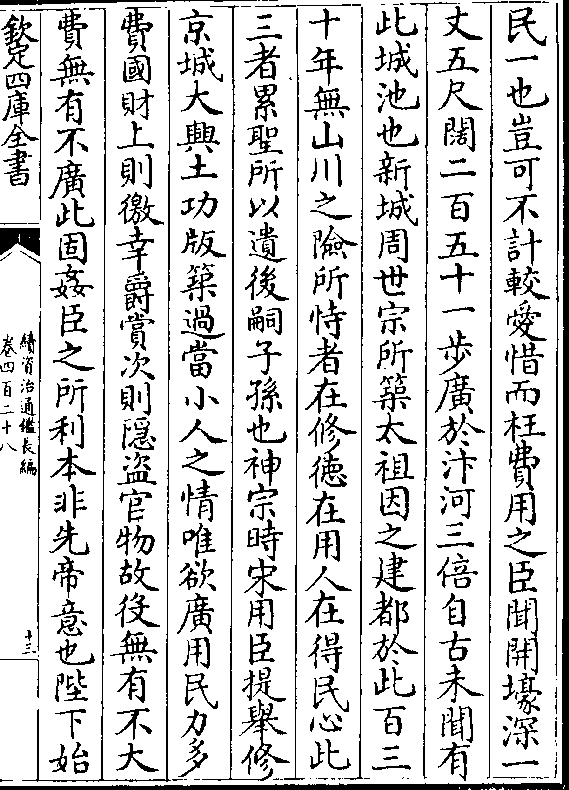 民一也豈可不計較愛惜而枉費用之臣聞開壕深一
丈五尺闊二百五十一步廣於汴河三倍自古未聞有
此城池也新城周世宗所築太祖因之建都於此百三
十年無山川之險所恃者在修德在用人在得民心此
三者累聖所以遺後嗣子孫也神宗時宋用臣提舉修
京城大興土功版築過當小人之情唯欲廣用民力多
費國財上則徼幸爵賞次則隠盗官物故役無有不大
費無有不廣此固姦臣之所利本非先帝意也陛下始
欽定四庫全書
續資治通鑑長編
卷四百二十八
十三